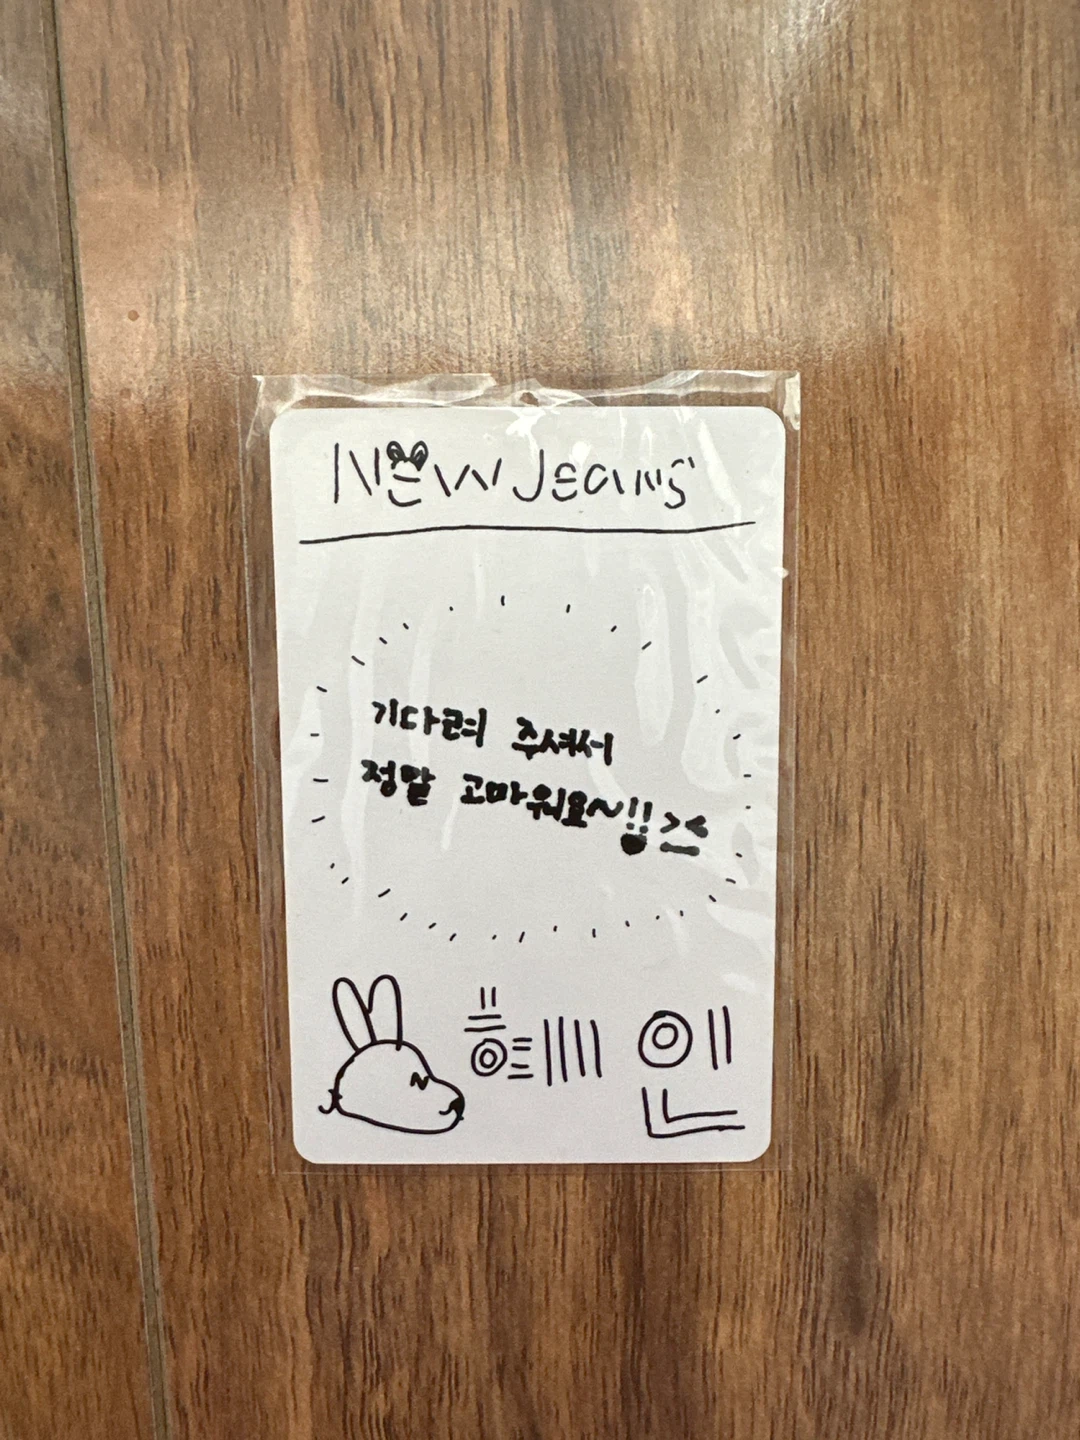 NEW Jeans
기다려 주셔서
정말 고마워요~!! >_<
혜인